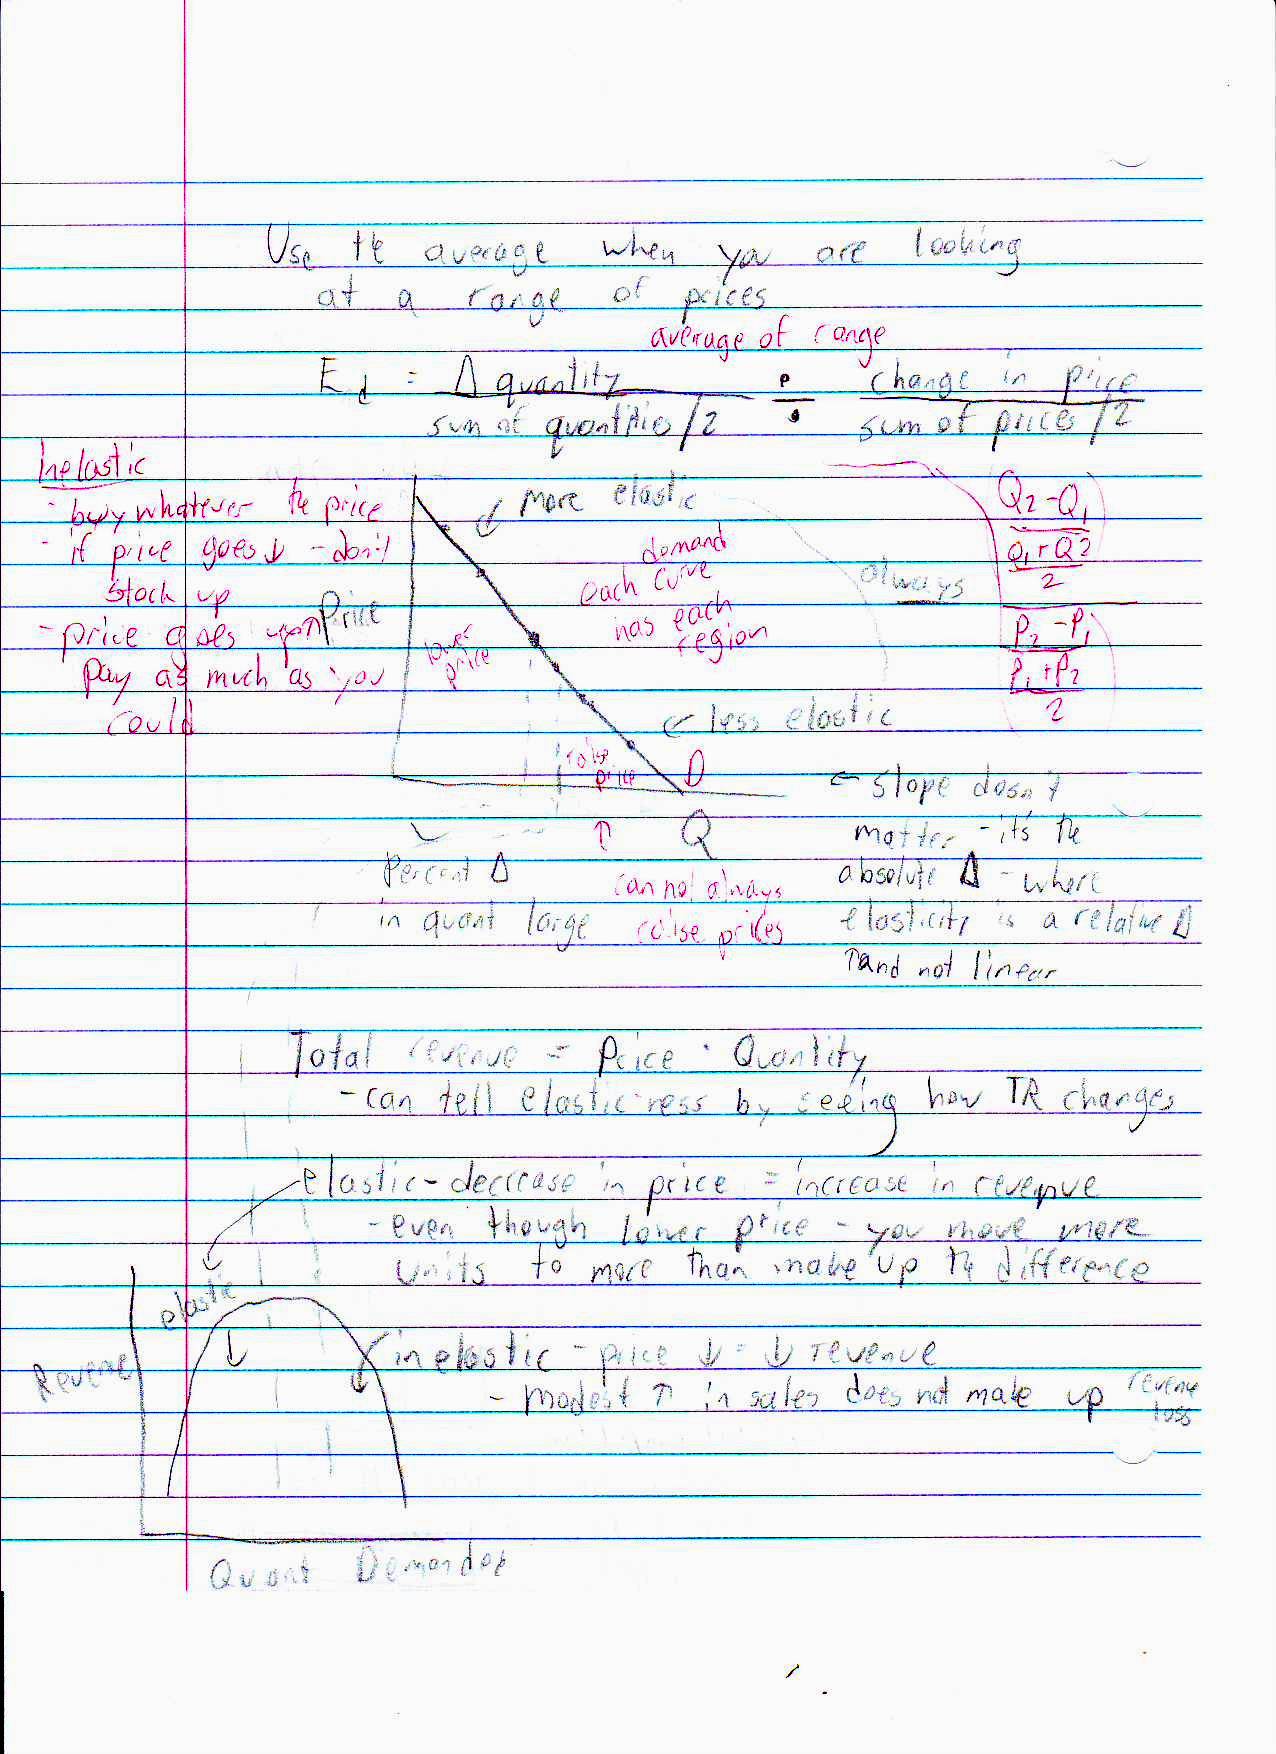 Use the average when you are looking
at a range of prices
average of range
Ed = Δ quantity ÷ change in price
sum of quantities/2 sum of prices/2
Inelastic
- buy whatever the price
- if price goes ↓ - don't
stock up
- price goes up
pay as much as you
could
↑ Price
lower
price
↙ more elastic
demand
each curve
has each
region
always
Q2 - Q1
Q1 + Q2
2
P2 - P1
P1 + P2
2
← less elastic
raise
price
D
Q
Percent Δ
in quant large
↑
can not always
raise prices
← slope doesn't
matter - it's the
absolute Δ - where
elasticity is a relative Δ
↑ and not linear
Total revenue = Price · Quantity
- can tell elastic-ness by seeing how TR changes
elastic - decrease in price = increase in revenue
- even though lower price - you move more
units to more than make up the difference
elastic
↓
Revenue
inelastic - price ↓ = ↓ revenue
- modest ↑ in sales does not make up revenue
loss
Quant Demanded